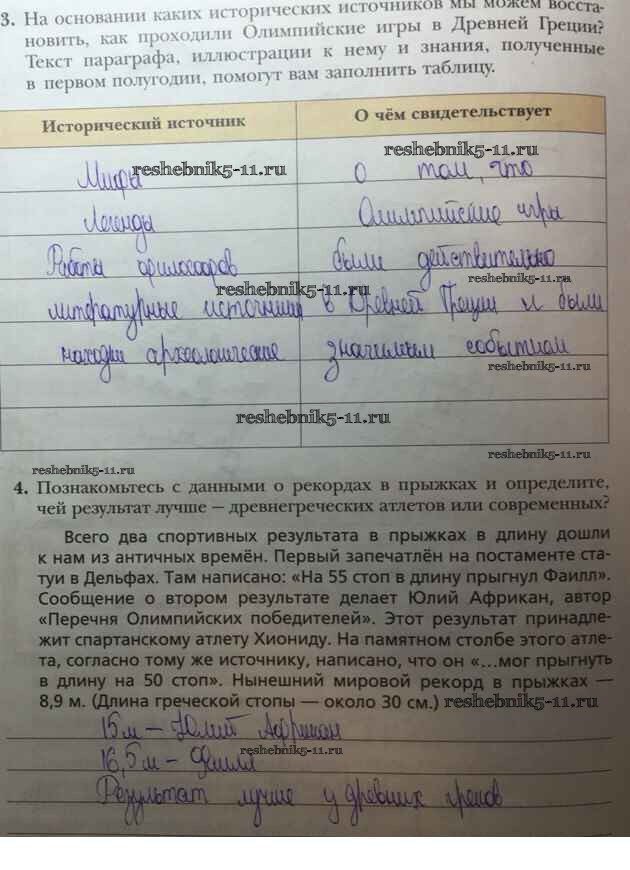 3. На основании каких исторических источников мы можем восста-
новить, как проходили Олимпийские игры в Древней Греции?
Текст параграфа, иллюстрации к нему и знания, полученные
в первом полугодии, помогут вам заполнить таблицу.
Исторический источник О чём свидетельствует
Мифы reshebnik5-11.ru о том, что reshebnik5-11.ru
Легенды Олимпийские игры
Работы философов были действительно
reshebnik5-11.ru
литературные источники в Древней Греции и были
reshebnik5-11.ru
находки археологические значимым событием
reshebnik5-11.ru
reshebnik5-11.ru
reshebnik5-11.ru
4. Познакомьтесь с данными о рекордах в прыжках и определите,
чей результат лучше – древнегреческих атлетов или современных?
Всего два спортивных результата в прыжках в длину дошли
к нам из античных времён. Первый запечатлён на постаменте ста-
туи в Дельфах. Там написано: «На 55 стоп в длину прыгнул Фаилл».
Сообщение о втором результате делает Юлий Африкан, автор
«Перечня Олимпийских победителей». Этот результат принадле-
жит спартанскому атлету Хиониду. На памятном столбе этого атле-
та, согласно тому же источнику, написано, что он «...мог прыгнуть
в длину на 50 стоп». Нынешний мировой рекорд в прыжках —
8,9 м. (Длина греческой стопы — около 30 см.) reshebnik5-11.ru
15м – Юлий Африкан
16,5м – Фаилл reshebnik5-11.ru
Результат лучше у древних греков